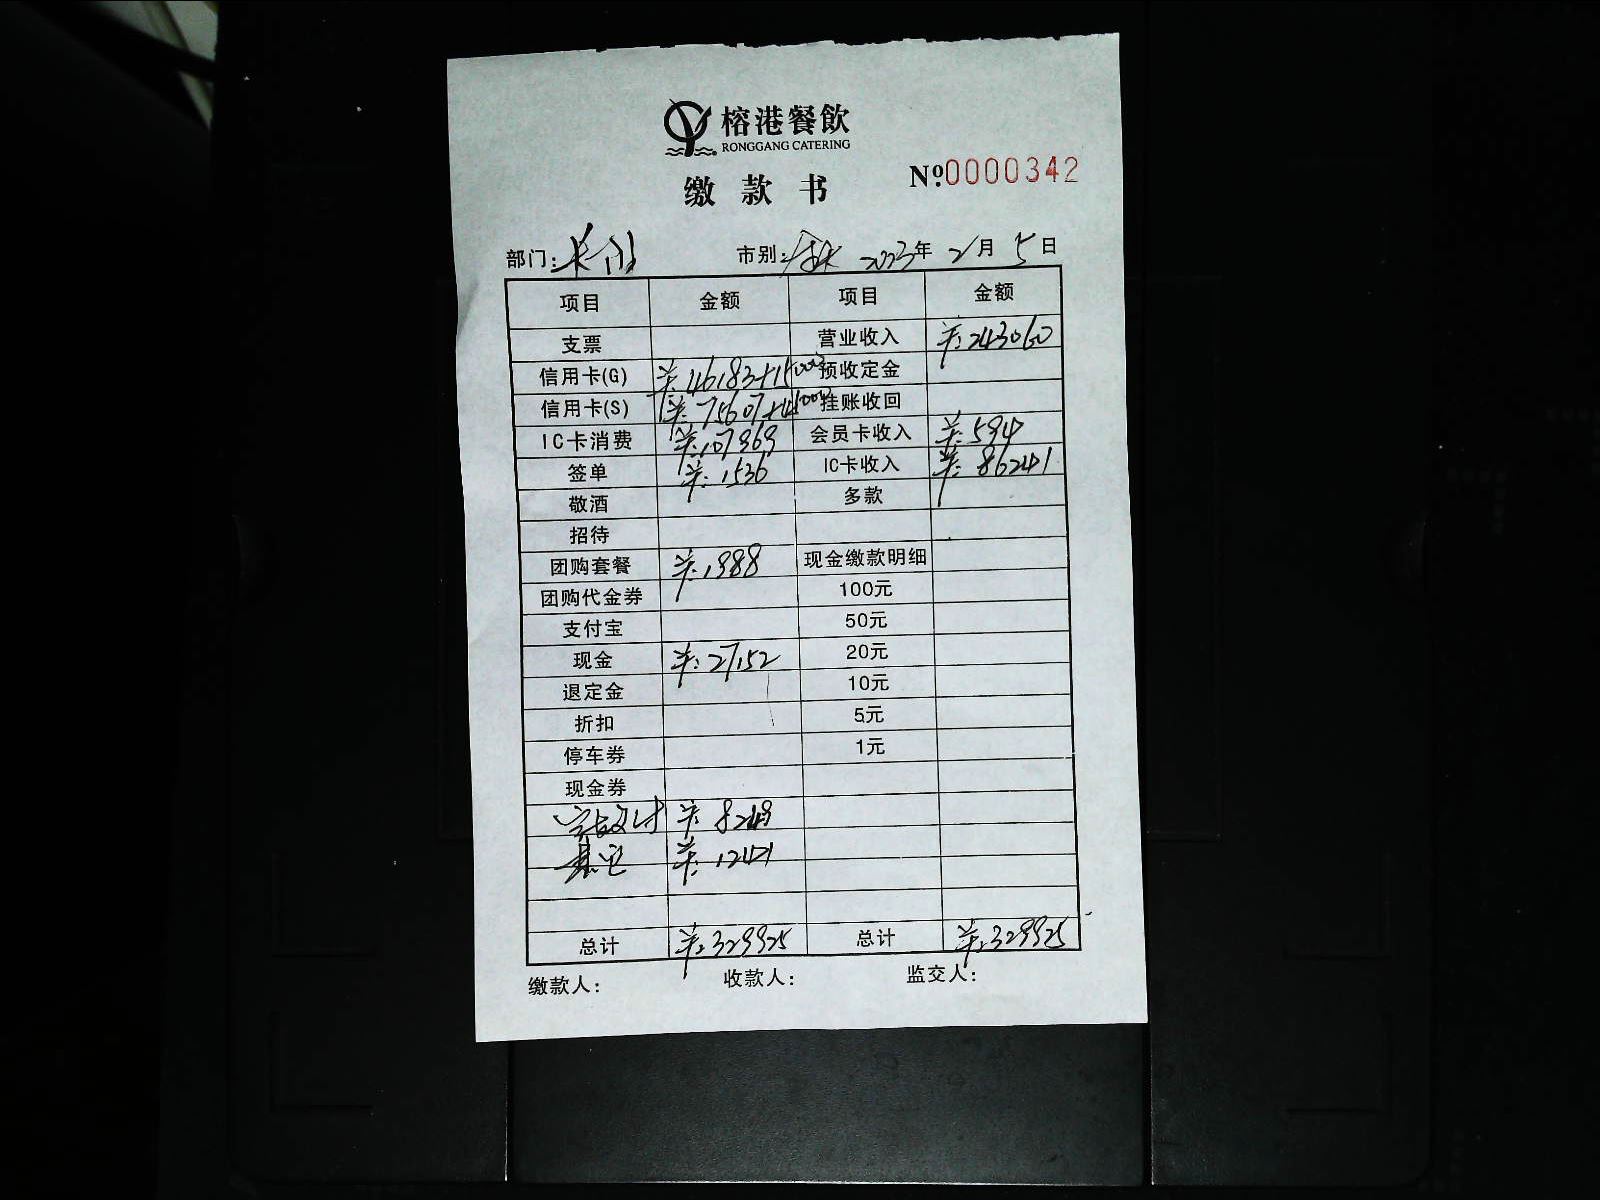 榕港餐飲
RONGGANG CATERING
缴款书 Nº:0000342
部门: 市别: 2023年2月5日
项目 金额 项目 金额
支票 营业收入 羊:243060
信用卡(G) 羊:46183+15000 预收定金
信用卡(S) 羊:75607+ 挂账收回
IC卡消费 羊:107969 会员卡收入 羊:594
签单 羊:1536 IC卡收入 羊:86241
敬酒 多款
招待
团购套餐 羊:1988 现金缴款明细
团购代金券 100元
支付宝 50元
现金 羊:27152 20元
退定金 10元
折扣 5元
停车券 1元
现金券
羊:8249
其它 羊:12421
总计 羊:329925 总计 羊:329925
缴款人: 收款人: 监交人: